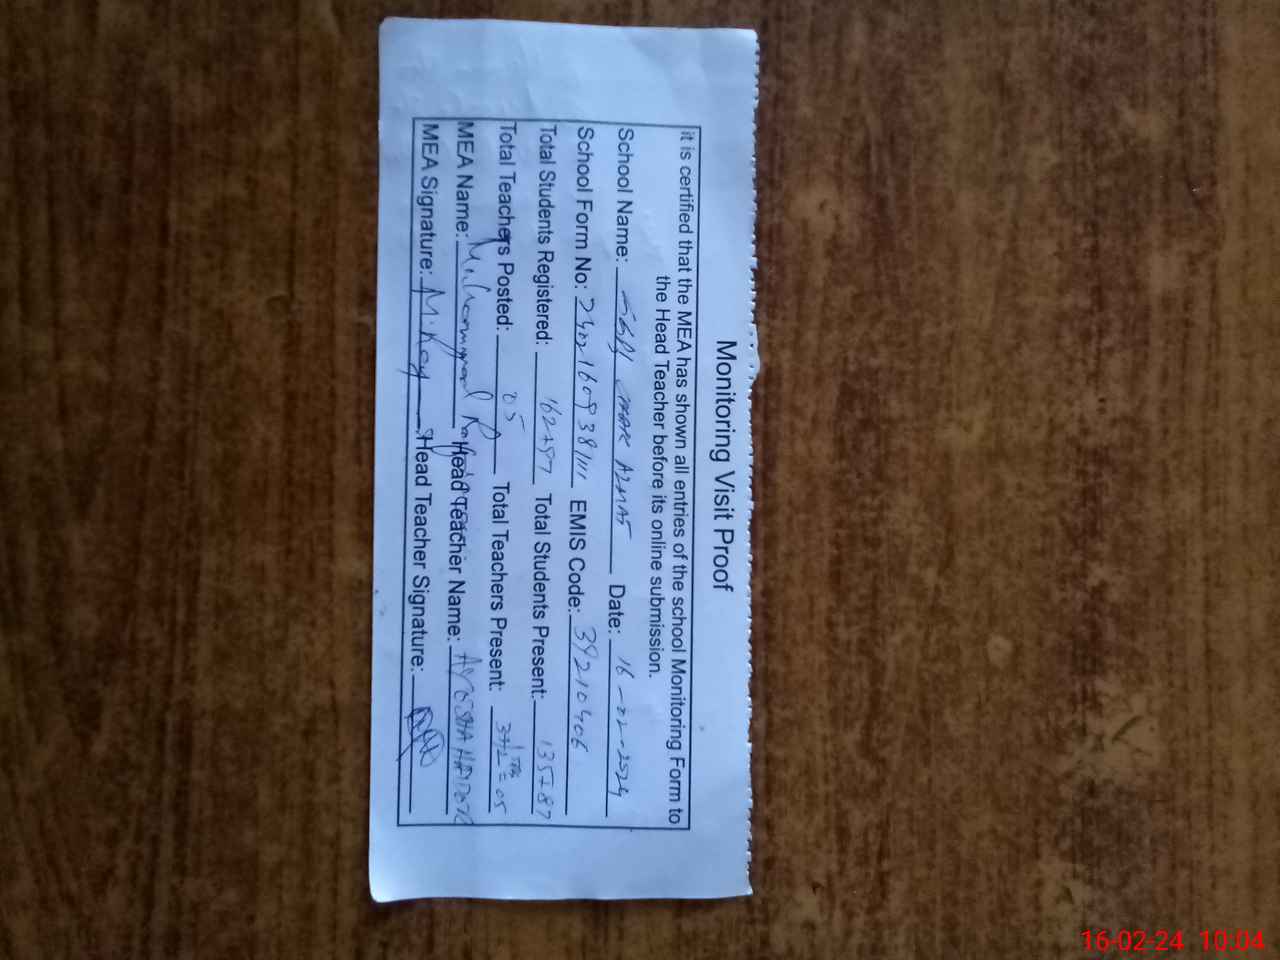 Monitoring Visit Proof
it is certified that the MEA has shown all entries of the school Monitoring Form to
the Head Teacher before its online submission.
School Name: Date: 16-02-2024
School Form No: EMIS Code: 39210406
Total Students Registered: Total Students Present:
Total Teachers Posted: 05 Total Teachers Present: = 05
MEA Name: Muhammad Head Teacher Name: HAIDER
MEA Signature: Head Teacher Signature:
16-02-24 10:04